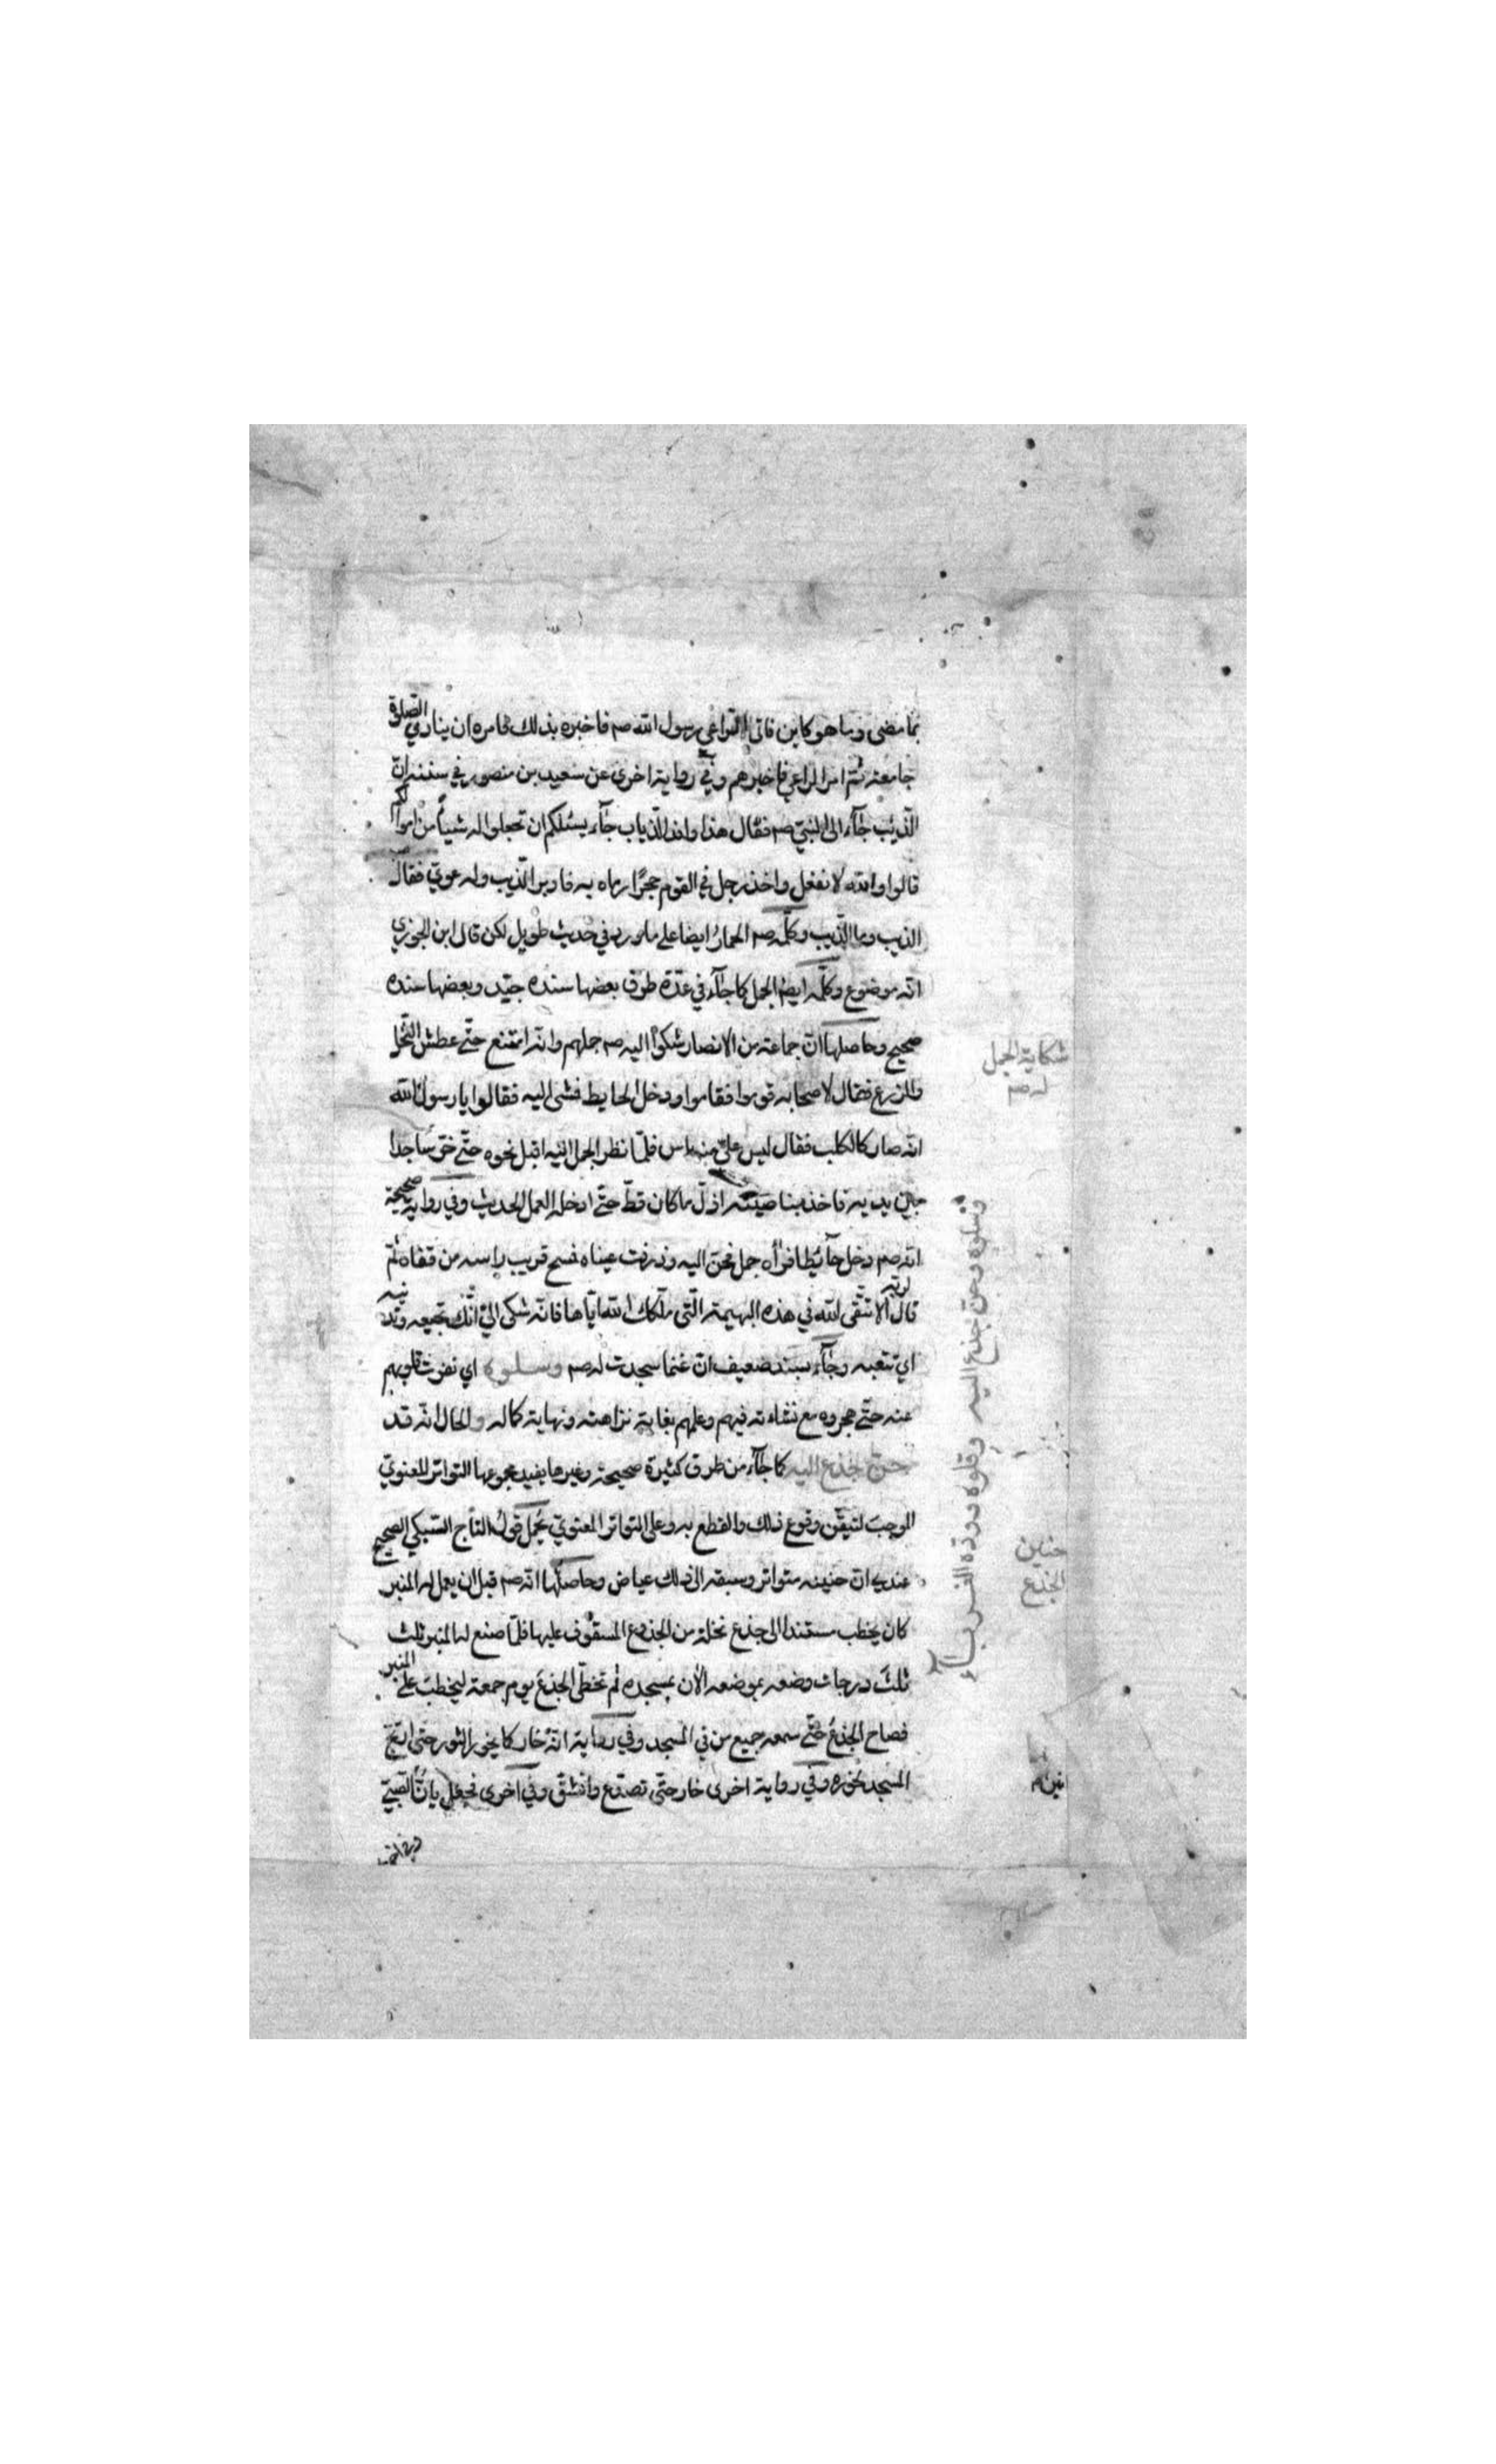 بما مضى وما هو كاين فاتى الراعي رسول الله صم فاخبره بذلك فامره ان ينادي الصلوة
جامعة ثم امر الراعي فاخبرهم وفي رواية اخرى عن سعيد بن منصور في سننه ان
الذئب جاء الى النبي صم فقال هذا وافد الذياب جاء يسئلكم ان تجعلوا له شيئا من اموالكم
قالوا والله لا نفعل واخذ رجل في القوم حجرا رماه به فادبر الذيب وله عوي فقال
الذيب وما الذيب وكلمه صم الحمار ايضا على ما ورد في حديث طويل لكن قال ابن الجوزي
انه موضوع وكلمه ايضا الجمل كما جاء في عدة طرق بعضها سنده جيد وبعضها سنده
صحيح وحاصلها ان جماعة من الانصار شكوا اليه صم جملهم وانه امتنع حتى عطش النخل
والزرع فقال لاصحابه قوموا فقاموا ودخل الحايط فمشى اليه فقالوا يا رسول الله
انه صار كالكلب فقال ليس علي منه باس فلما نظر الجمل اليه اقبل نحوه حتى خر ساجدا
بين يديه فاخذ بناصيته اذل ما كان قط حتى ادخله العمل الحديث وفي رواية صحيحة
انه صم دخل حائطا فرأه جمل فحن اليه وذرفت عيناه فمسح قريب راسه من قفاه ثم
قال لربه الا تتقي الله في هذه البهيمة التي ملكك الله اياها فانه شكى الي انك تجيعه وتدئبه
اي تتعبه وجاء بسند ضعيف ان غنما سجدت له صم وسلوه اي نفرت قلوبهم
عنه حتى هجروه مع نشاءته فيهم وعلمهم بغاية نزاهته ونهاية كماله والحال انه قد
حن جذع اليه كما جاء من طرق كثيرة صحيحة وغيرها يفيد مجموعها التواتر المعنوي
الموجب لتيقن وقوع ذلك والقطع به وعلى التواتر المعنوي يحمل قول التاج السبكي الصحيح
عندي ان حنينه متواتر وسبقه الى ذلك عياض وحاصلها انه صم قبل ان يعمل له المنبر
كان يخطب مستندا الى جذع نخلة من الجذوع المسقوف عليها فلما صنع له المنبر ثلث
ثلث درجات وضعه بموضعه الان بمسجده ثم تخطى الجذع يوم جمعة ليخطب على المنبر
فصاح الجذع حتى سمعه جميع من في المسجد وفي رواية انه خار كما يخور الثور حتى ارتج
المسجد لخوره وفي رواية اخرى خار حتى تصدع وانشق وفي اخرى فجعل يان انين الصبي
شكاية الجمل
له صم
وسلوه وحن جذع اليه وقلوه ووده الغرباء
حنين
الجذع
انين